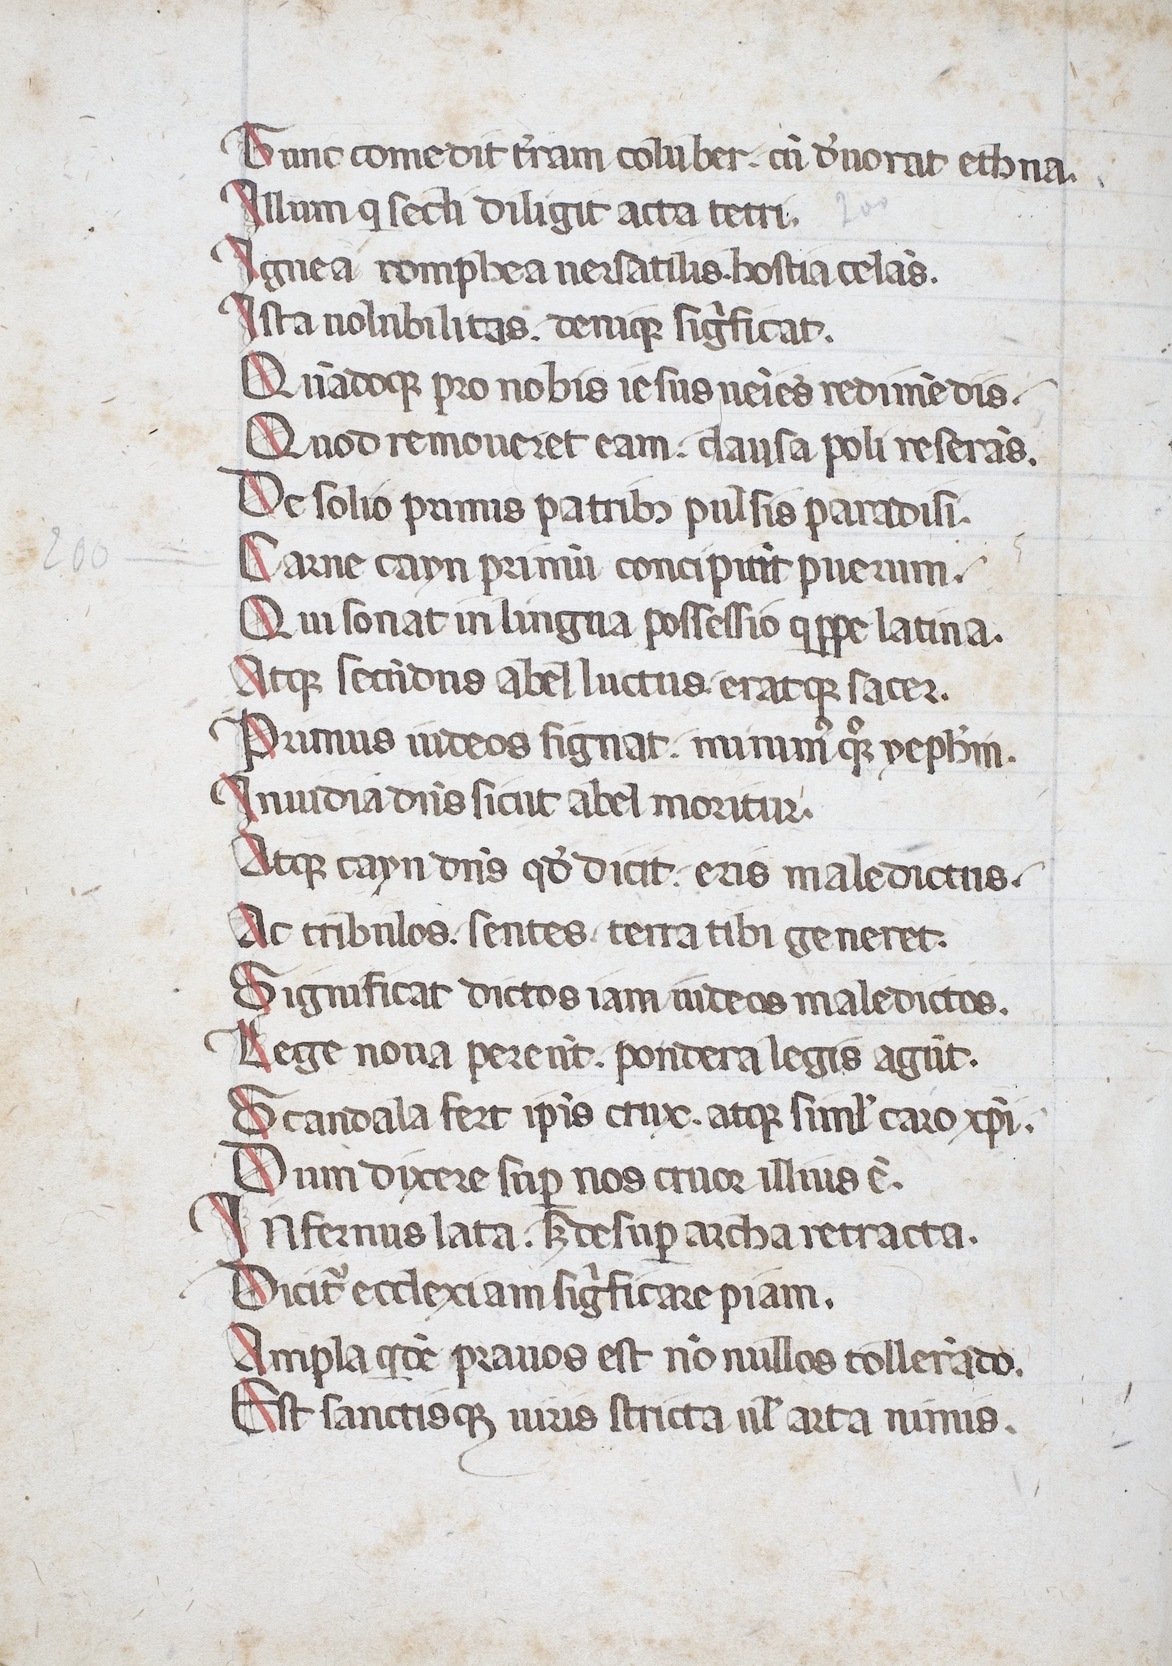 Tunc comedit t̃ram coluber. cũ d̉uorat ethna.
Illum q secli diligit acta tetri. 200
Ignea romphea uersatilis. hostia celãs.
Ista uolubilitas. deniqꝫ sigͥficat.
Qũadoqꝫ pro nobis iesus ueĩes redimẽdis.
Quod remoueret eam. clausa poli reserãs.
De solio primis patribꝫ pulsis paradisi.
200 Carne cayn primũ concipiũt puerum.
Qui sonat in lingua possessio qͥppe latina.
Atqꝫ secũdus abel luctus. eratqꝫ sacer.
Primus iudeos signat. minimͥ qͦꝫ
Inuidia dñs sicut abel moritur.
Atqꝫ cayn dñs qd̉ dicit. eris maledictus.
Ac tribulos. sentes. terra tibi generet.
Significat dictos iam iudeos maledictos.
Lege noua pereũt. pondera legis agũt.
Scandala fert ip̃is crux. atqꝫ simil̉ caro xp̃i.
Dum dixere suꝑ nos cruor illius ẽ.
Infernus lata. desuꝑ archa retracta.
Dicit᷑ ecclexiam sigͥficare piam.
Ampla qͥdẽ prauos est nõ nullos tollerãdo.
Est sanctisqꝫ uiris stricta ul̉ arta nimis.